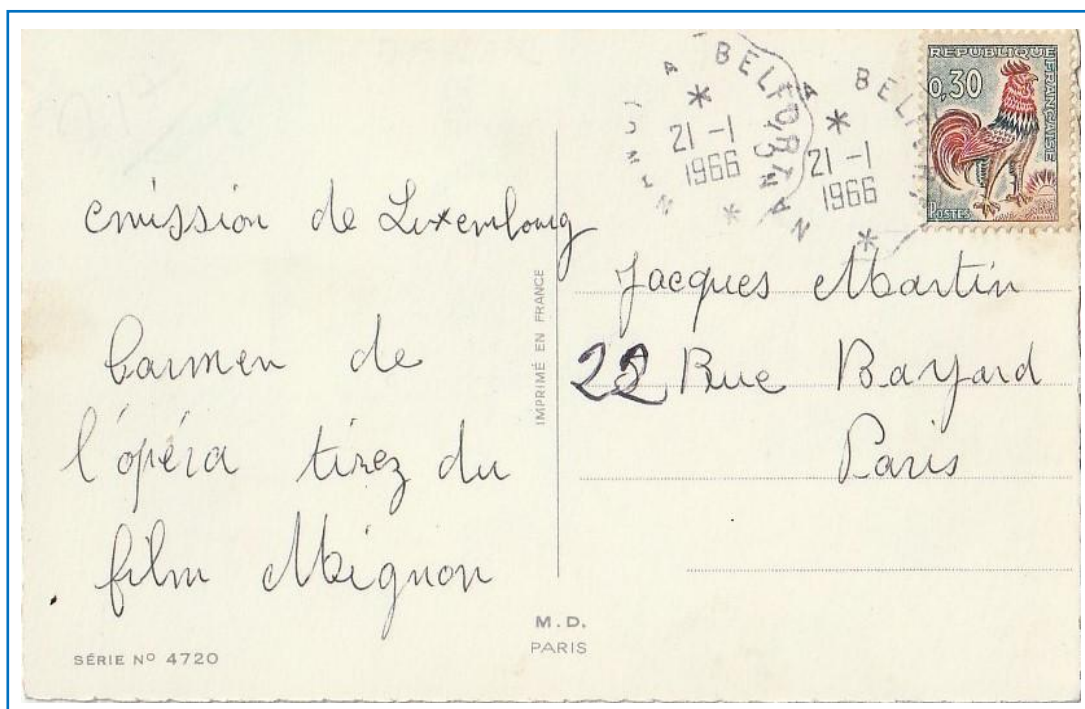 émission de Luxembourg
Carmen de
l'opéra tirez du
film Mignon
SÉRIE Nº 4720
IMPRIMÉ EN FRANCE
M. D.
PARIS
A BELFORT
*
21 -1
1966
*
A BELF
*
21 -1
1966
*
RÉPUBLIQUE FRANÇAISE
0,30
POSTES
Jacques Martin
22 Rue Bayard
Paris